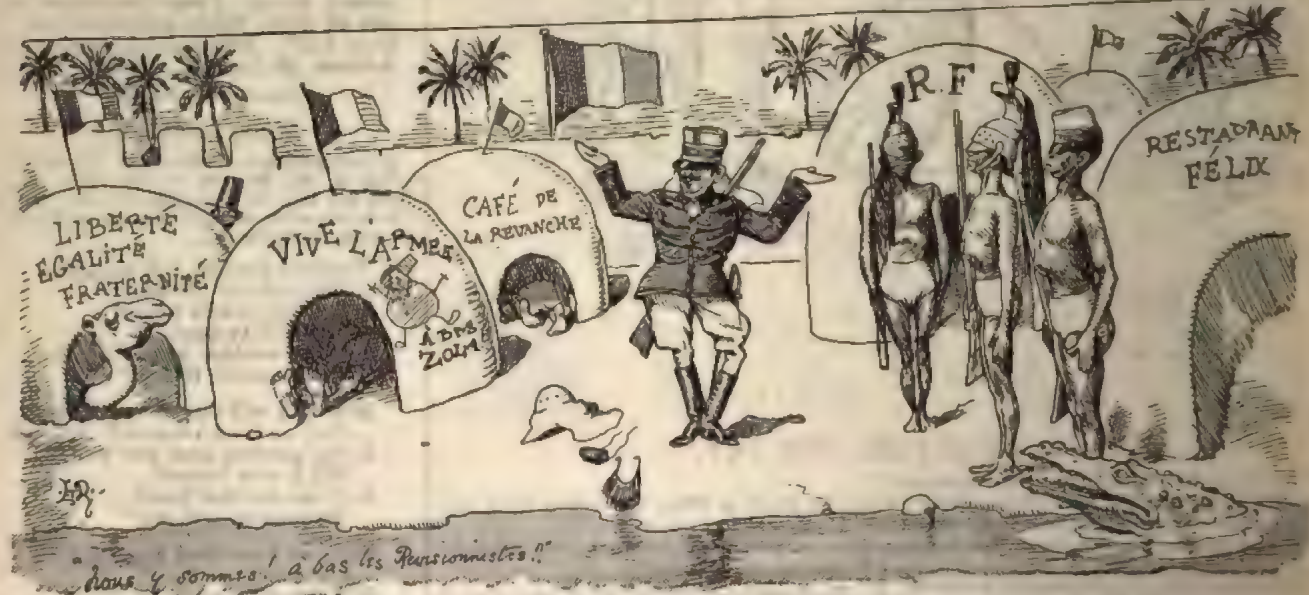 LIBERTÉ
EGALITÉ
FRATERNITÉ
VIVE L'ARMEE
À BAS
ZOLA
CAFÉ DE
LA REVANCHE
R F
RESTAURANT
FÉLIX
"Nous y sommes! à bas les Revisionnistes!!"